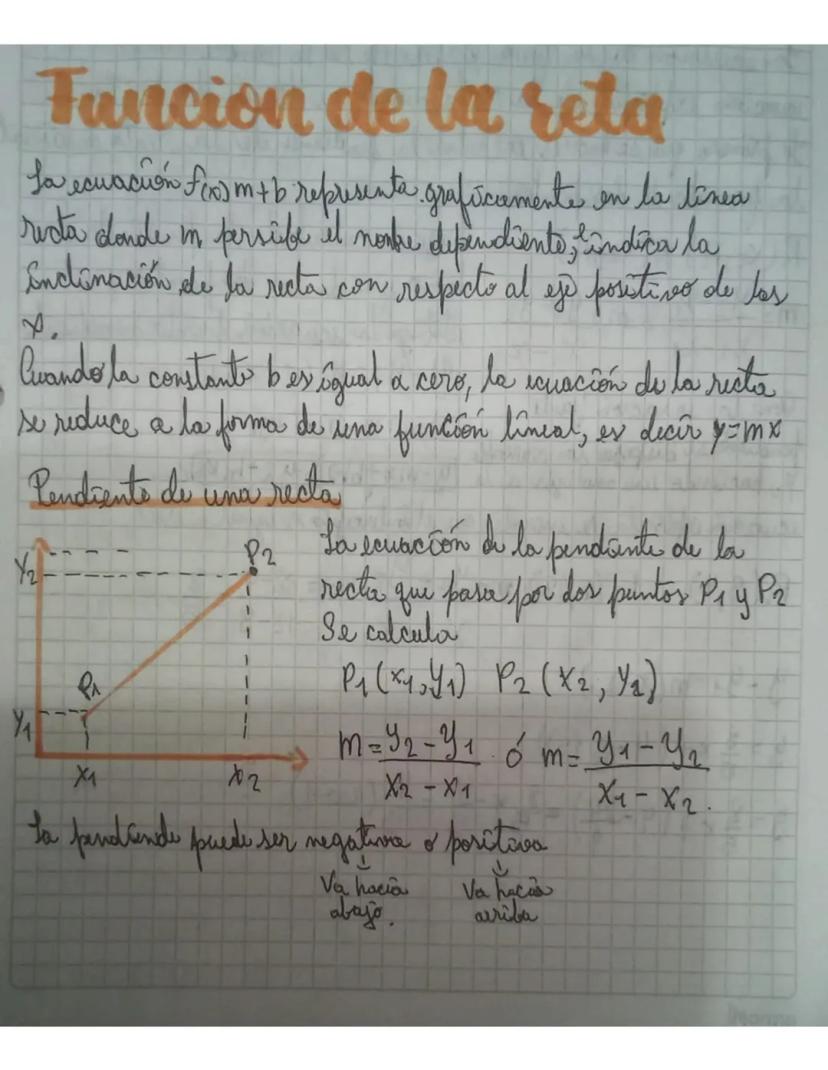 Funcion de la reta
La ecuación f(x) m+b representa graficamente en la línea
recta donde m persibe el nombre dependiente, e indica la
inclinación de la recta con respecto al eje positivo de las
x.
Cuando la constante b es igual a cero, la ecuación de la recta
se reduce a la forma de una función lineal, es decir y=mx
Pendiente de una recta
La ecuación de la pendiente de la
recta que pasa por dos puntos P1 y P2
Se calcula
P1 (x1, y1) P2 (x2, y2)
m = y2 - y1 / x2 - x1 ó m = y1 - y2 / x1 - x2.
Y2
P2
P1
Y1
X1
X2
La pendiende puede ser negativa o positiva
Va hacia Va hacia
abajo. arriba